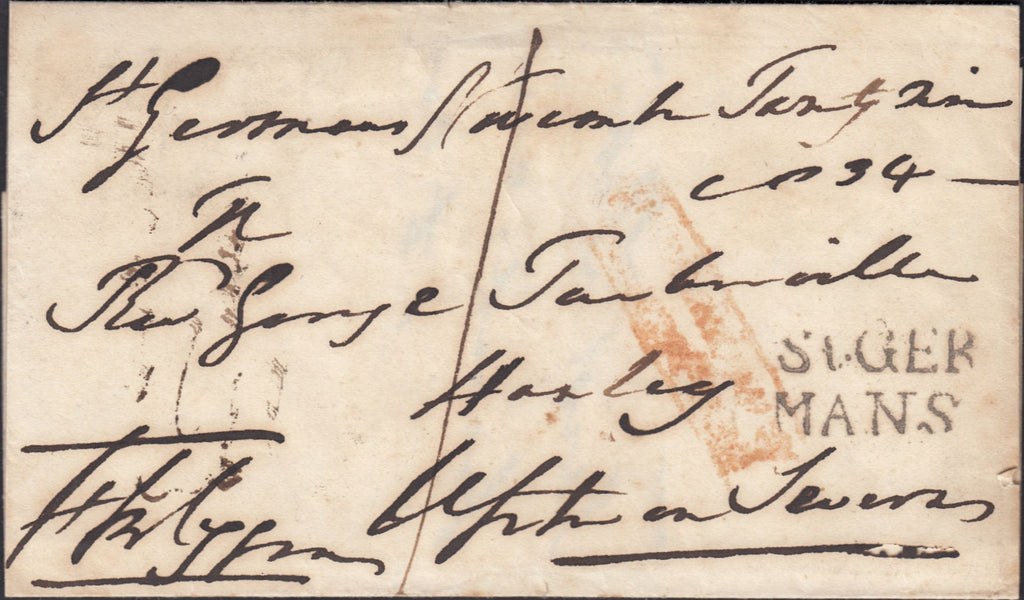 St Germans November Twenty nine
1834
Rev George Turberville
Hanley
Upton on Severn
ST.GER
MANS